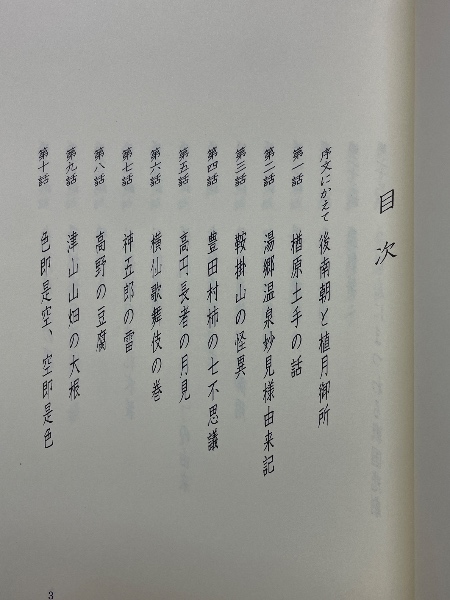 目次
序文にかえて 後南朝と植月御所
第一話 楢原土手の話
第二話 湯郷温泉妙見様由来記
第三話 鞍掛山の怪異
第四話 豊田村姉の七不思議
第五話 高円長者の月見
第六話 横仙歌舞伎の巻
第七話 神五郎の雷
第八話 高野の豆腐
第九話 津山山畑の大根
第十話 色即是空、空即是色
3